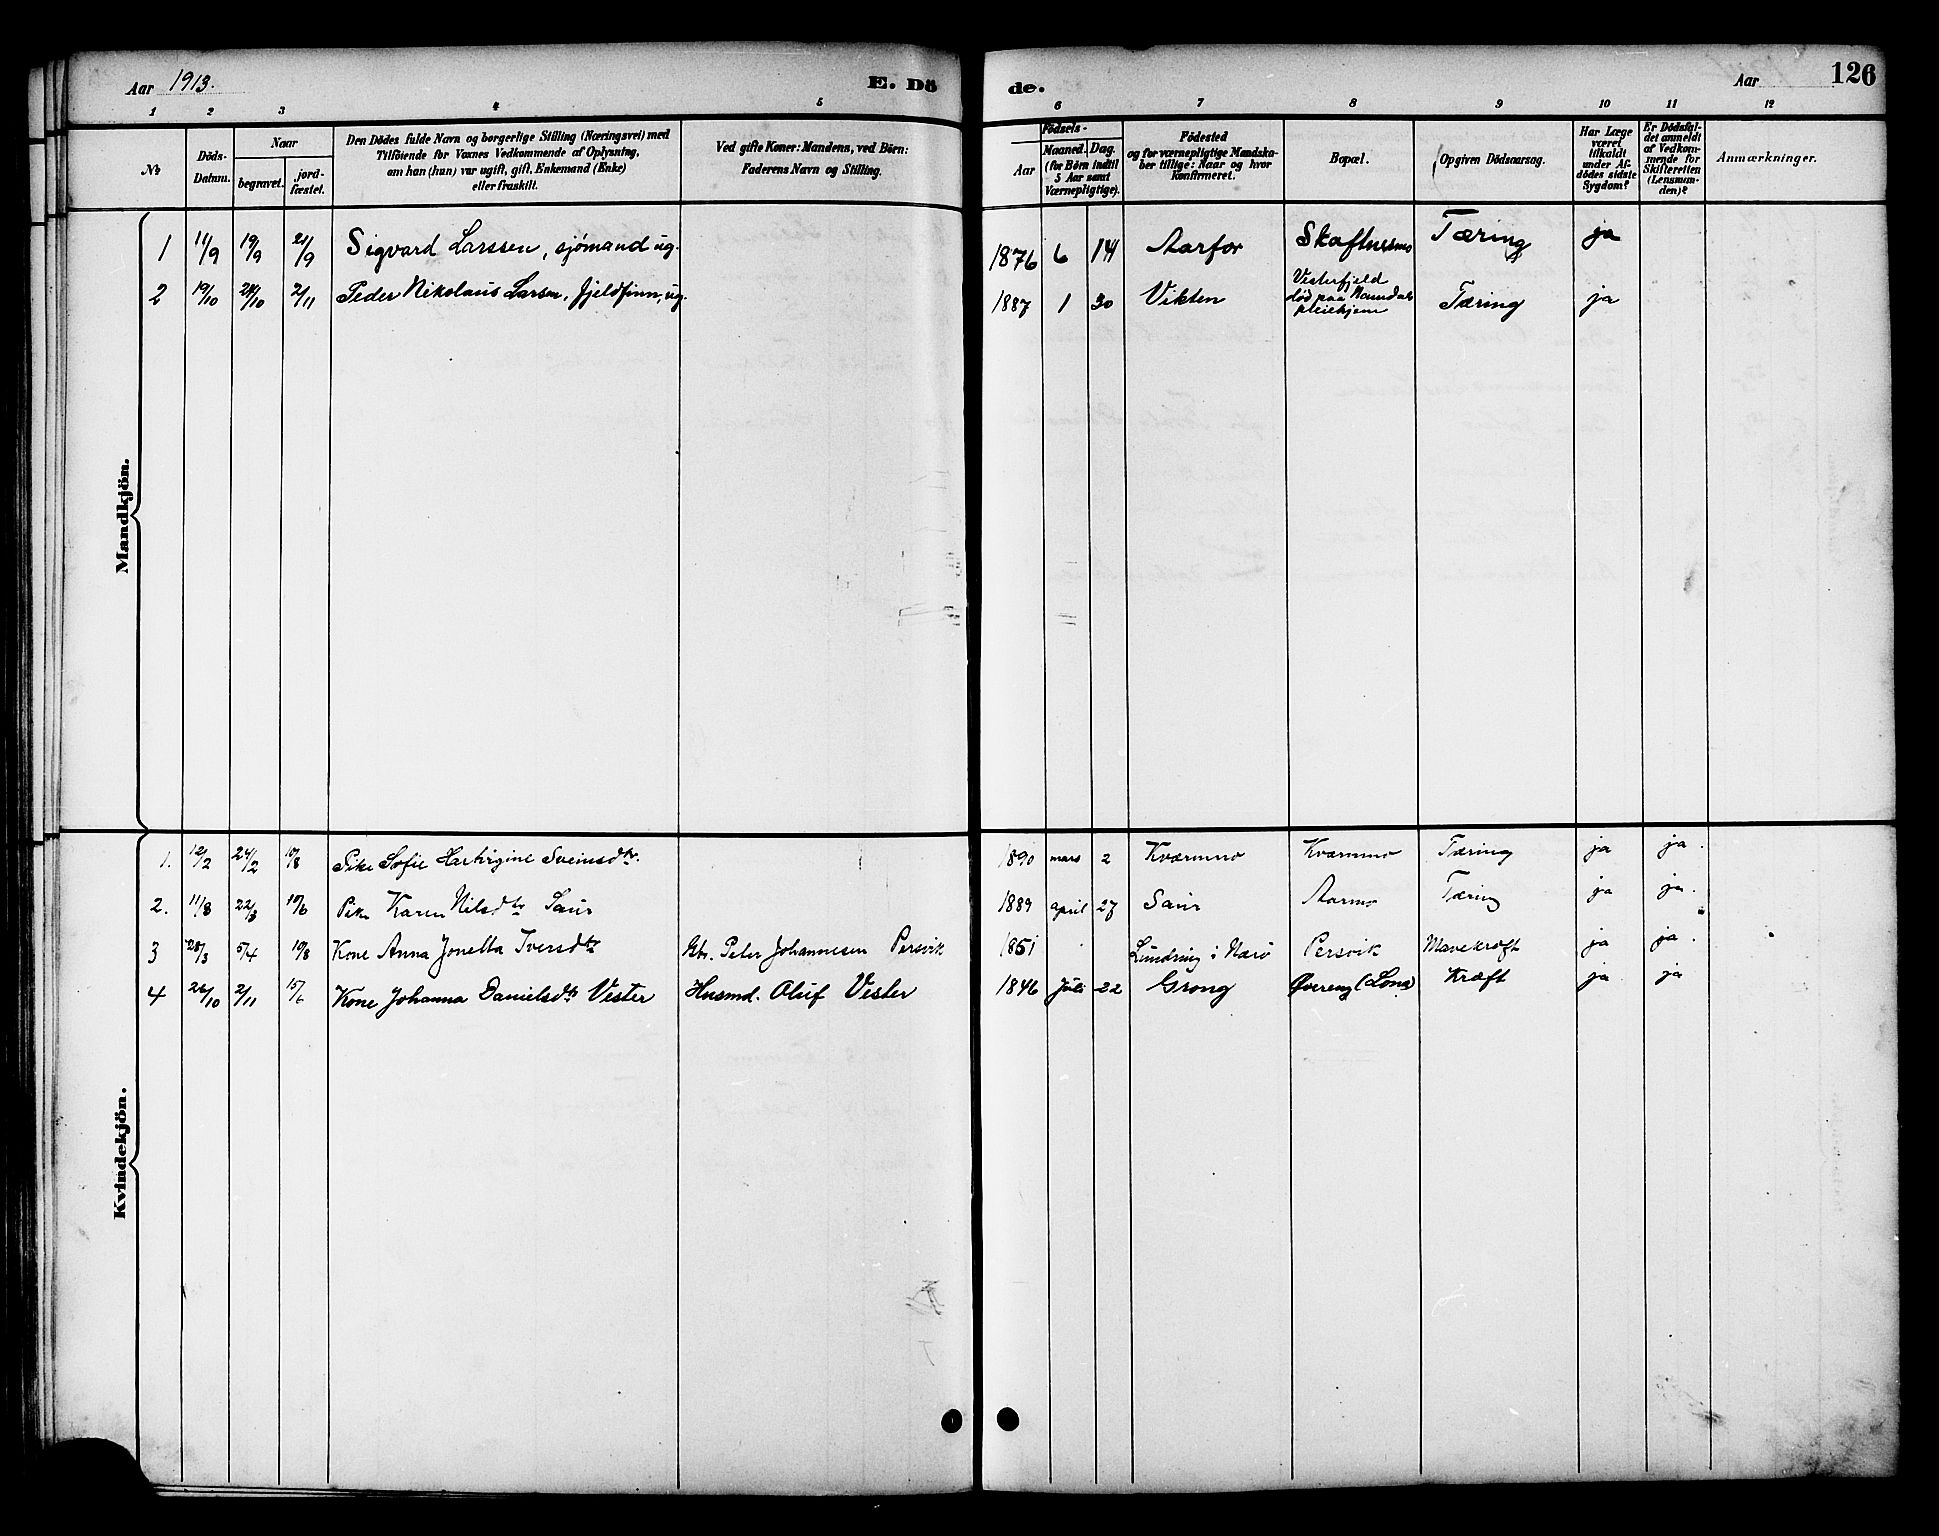 Aar 1913.
E. Dö
de.
Aar
126
1 2 3 4 5 6 7 8 9 10 11 12
№
Döds-Datum.
Naar
begravet.
jord-fæstet.
Den Dödes fulde Navn og borgerlige Stilling (Næringsvei) med
Tilföiende for Voxnes Vedkommende af Oplysning,
om han (hun) var ugift, gift, Enkemand (Enke)
eller fraskilt.
Ved gifte Koner: Mandens, ved Börn:
Faderens Navn og Stilling.
Födsels-
Aar
Maaned. Dag.
(for Börn indtil
5 Aar samt
Værnepligtige).
Födested
og for værnepligtige Mandska-
ber tillige: Naar og hvor
Konfirmeret.
Bopæl.
Opgiven Dödsaarsag.
Har Læge
været
tilkaldt
under Af-
dödes sidste
Sygdom?
Er Dödsfal-
det anmeldt
af Vedkom-
mende for
Skifteretten
(Lensman-
den)?
Anmærkninger.
Mandkjön.
1 11/9 19/9 21/9 Sigvard Larssen, sjömand ug. 1876 6 14 Aarfor Skaftnesmo Tæring ja
2 19/10 24/10 2/11 Peder Nikolaus Larsen, fjeldfinn, ug. 1887 1 30 Vikten Vesterfjeld
død paa Namdals
pleiehjem Tæring ja
Kvindekjön.
1. 12/2 24/2 10/8 Pike Sofie Sveinsdtr. 1890 mars 2 Kværnmo Kværnmo Tæring ja ja.
2. 11/3 22/3 10/6 Pike Karen Nilsdtr Saur 1889 april 27 Saur Aarmo Tæring ja ja.
3 28/3 5/4 10/8 Kone Anna Jonetta Iversdtr Gbr. Peter Johannesen Persvik 1851 Lundring i Nærö Persvik Mavekræft ja ja.
4 26/10 2/11 15/6 Kone Johanna Danielsdtr Vester Husmd. Oluf Vester 1846 Juli 22 Grong Øvereng (Lona) Kræft ja ja